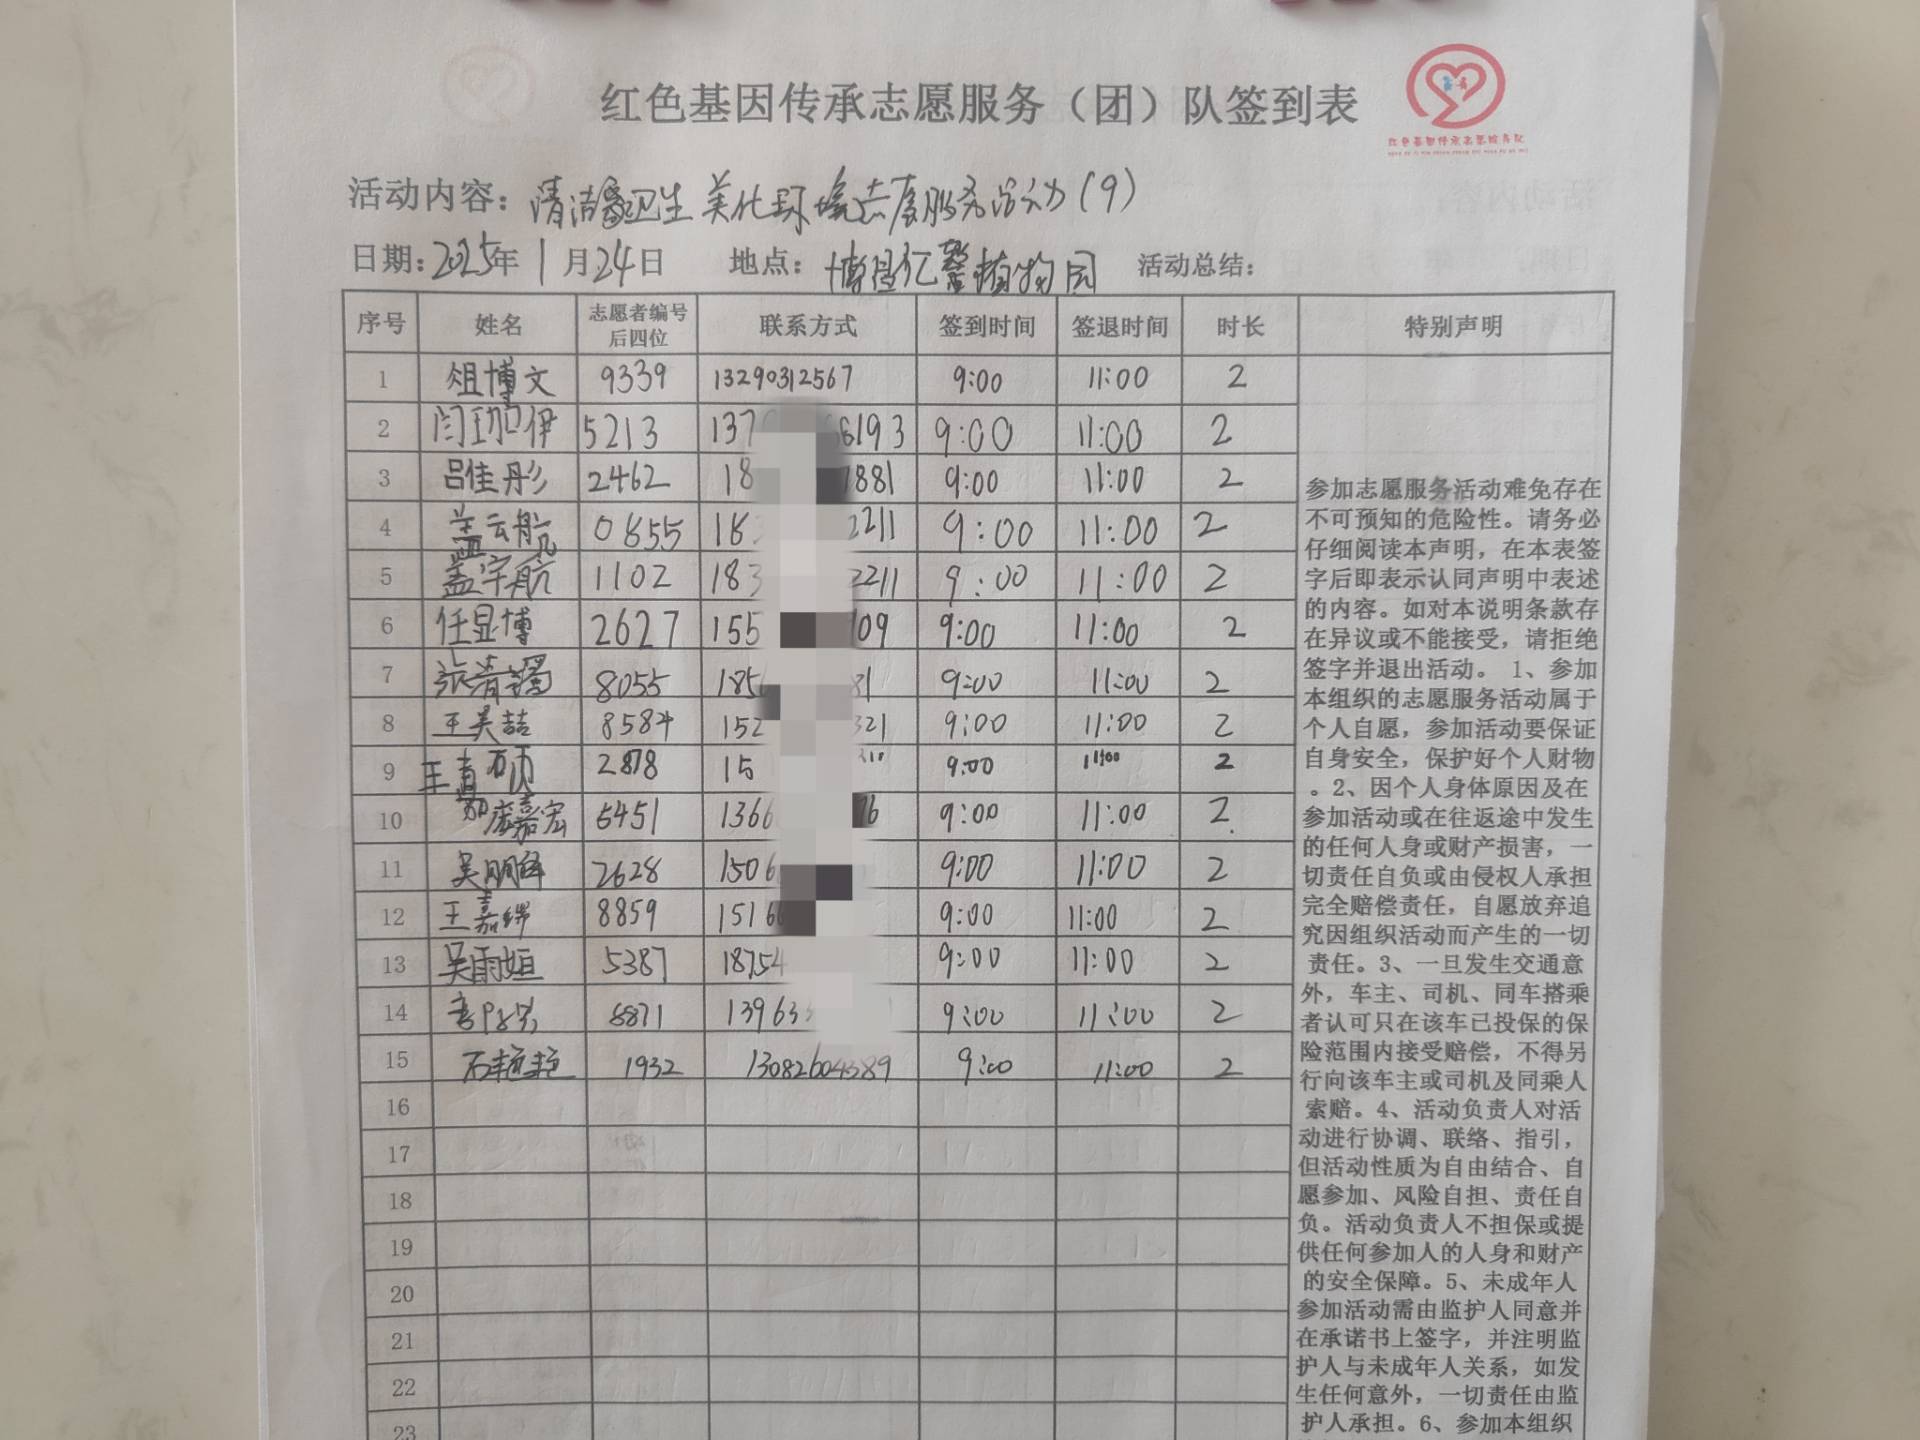 红色基因传承志愿服务（团）队签到表
红色基因传承志愿服务队
活动内容：清洁家卫生 美化环境志愿服务活动（9）
日期：2025年1月24日 地点：博昌亿馨植物园 活动总结：
序号 姓名 志愿者编号后四位 联系方式 签到时间 签退时间 时长 特别声明
1 俎博文 9339 13290312567 9:00 11:00 2
2 闫珈伊 5213 137 6193 9:00 11:00 2
3 吕佳彤 2462 18 881 9:00 11:00 2
4 盖云航 0855 18 2211 9:00 11:00 2
5 盖宇航 1102 183 2211 9:00 11:00 2
6 任显博 2627 155 109 9:00 11:00 2
7 张清 8055 185 81 9:00 11:00 2
8 王美喆 8584 152 321 9:00 11:00 2
9 王 硕 2878 15 9:00 11:00 2
10 嘉宏 6451 1366 76 9:00 11:00 2
11 吴 2628 1506 9:00 11:00 2
12 王嘉 8859 1516 9:00 11:00 2
13 吴雨姮 5387 18754 9:00 11:00 2
14 6871 13963 9:00 11:00 2
15 石艳艳 1932 13082604389 9:00 11:00 2
16
17
18
19
20
21
22
23
参加志愿服务活动难免存在
不可预知的危险性。请务必
仔细阅读本声明，在本表签
字后即表示认同声明中表述
的内容。如对本说明条款存
在异议或不能接受，请拒绝
签字并退出活动。 1、参加
本组织的志愿服务活动属于
个人自愿，参加活动要保证
自身安全，保护好个人财物
。2、因个人身体原因及在
参加活动或在往返途中发生
的任何人身或财产损害，一
切责任自负或由侵权人承担
完全赔偿责任，自愿放弃追
究因组织活动而产生的一切
责任。3、一旦发生交通意
外，车主、司机、同车搭乘
者认可只在该车已投保的保
险范围内接受赔偿，不得另
行向该车主或司机及同乘人
索赔。4、活动负责人对活
动进行协调、联络、指引，
但活动性质为自由结合、自
愿参加、风险自担、责任自
负。活动负责人不担保或提
供任何参加人的人身和财产
的安全保障。5、未成年人
参加活动需由监护人同意并
在承诺书上签字，并注明监
护人与未成年人关系，如发
生任何意外，一切责任由监
护人承担。6、参加本组织